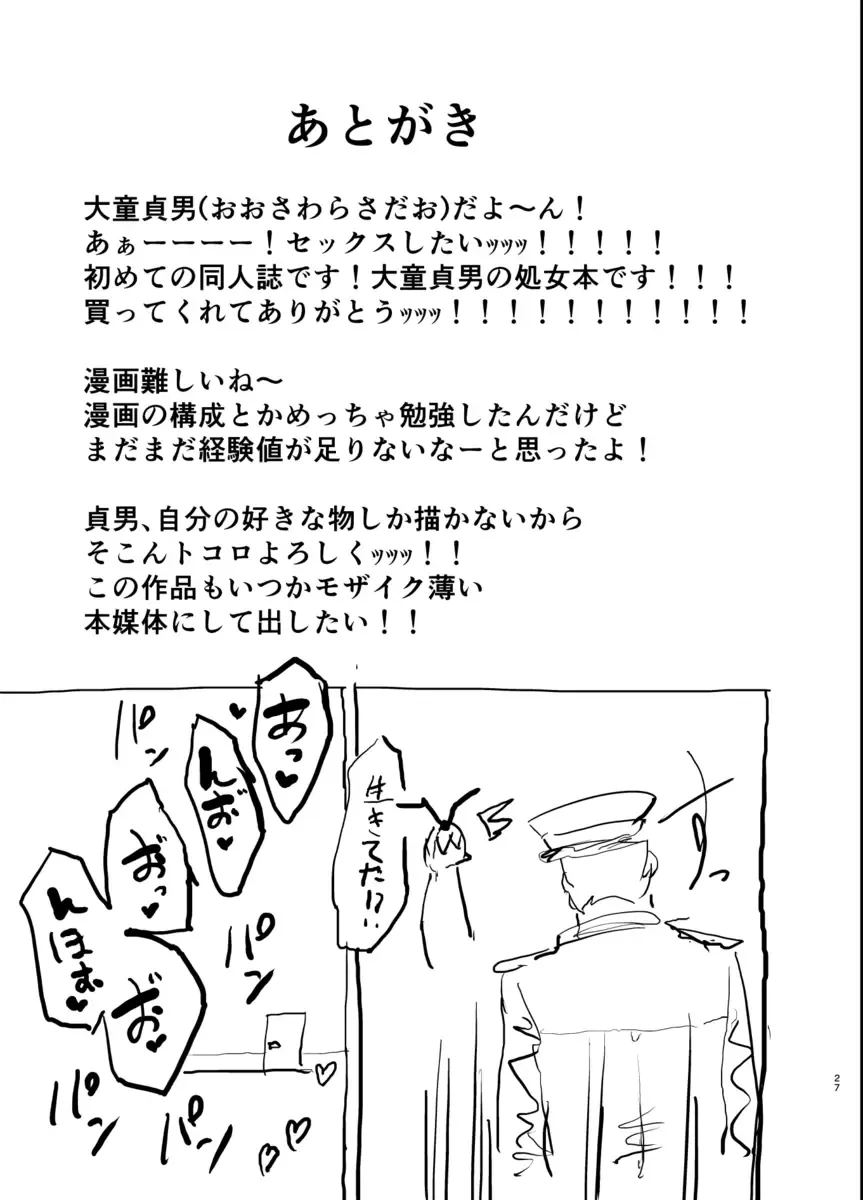 あとがき
大童貞男(おおさわらさだお)だよ〜ん！
あぁーーーー！セックスしたいｯｯｯ！！！！！
初めての同人誌です！大童貞男の処女本です！！！
買ってくれてありがとうｯｯｯ！！！！！！！！！！！
漫画難しいね〜
漫画の構成とかめっちゃ勉強したんだけど
まだまだ経験値が足りないなーと思ったよ！
貞男、自分の好きな物しか描かないから
そこんトコロよろしくｯｯｯ！！
この作品もいつかモザイク薄い
本媒体にして出したい！！
スッ
生きてた!?
あっ♥
んお♥
おっ♥
お゛♥
んほお♥
パン
パン
パン
パン
27